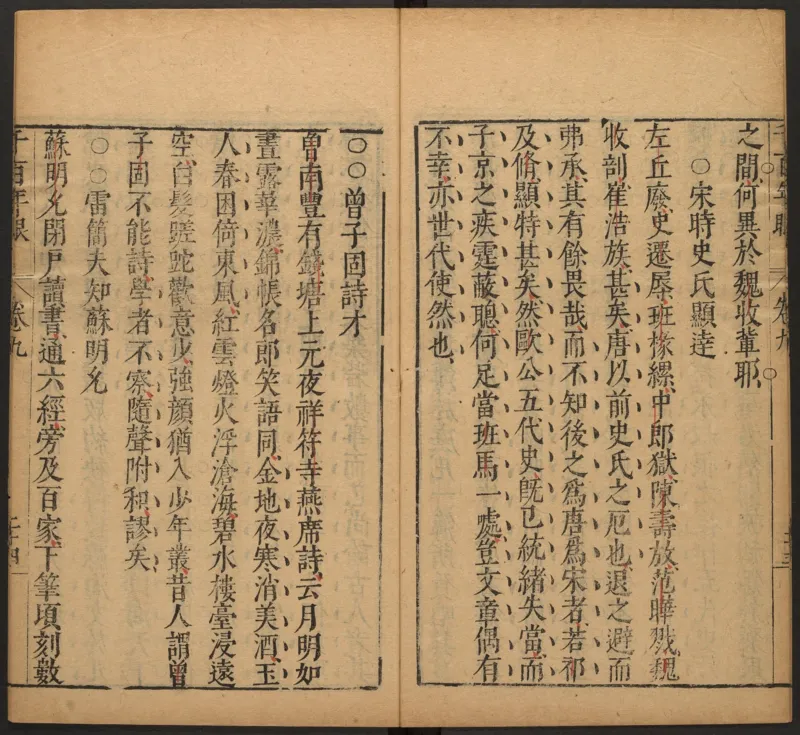 之間何異於魏收輩耶
○宋時史氏顯達
左丘廢史遷辱班椽縲中郎獄陳壽放范曄戮魏
收剖崔浩族甚矣唐以前史氏之厄也退之避而
弗承其有餘畏哉而不知後之爲唐爲宋者若祁
及脩顯特甚矣然歐公五代史旣已統緒失當而
子京之疾霆蔽聰何足當班馬一處豈文章偶有
不幸亦世代使然也
○○曾子固詩才
曾南豐有錢塘上元夜祥符寺燕席詩云月明如
晝露華濃錦帳名郎笑語同金地夜寒消美酒玉
人春困倚東風紅雲燈火浮滄海碧水樓臺浸遠
空白髮蹉跎歡意少強顏猶入少年叢昔人謂曾
子固不能詩學者不察隨聲附和謬矣
○○雷簡夫知蘇明允
蘇明允閉戸讀書通六經旁及百家下筆頃刻數
千百年眼
卷九